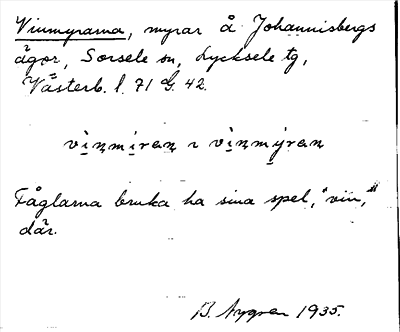 Vinmyrarna, myrar å Johannisbergs
ägor, Sorsele sn, Lycksele tg,
Västerb. l. 71 G. 42.
vìnmi̱ran ı vìnmýran
Fåglarna bruka ha sina spel, "vin,"
där.
B. Nygren 1935.